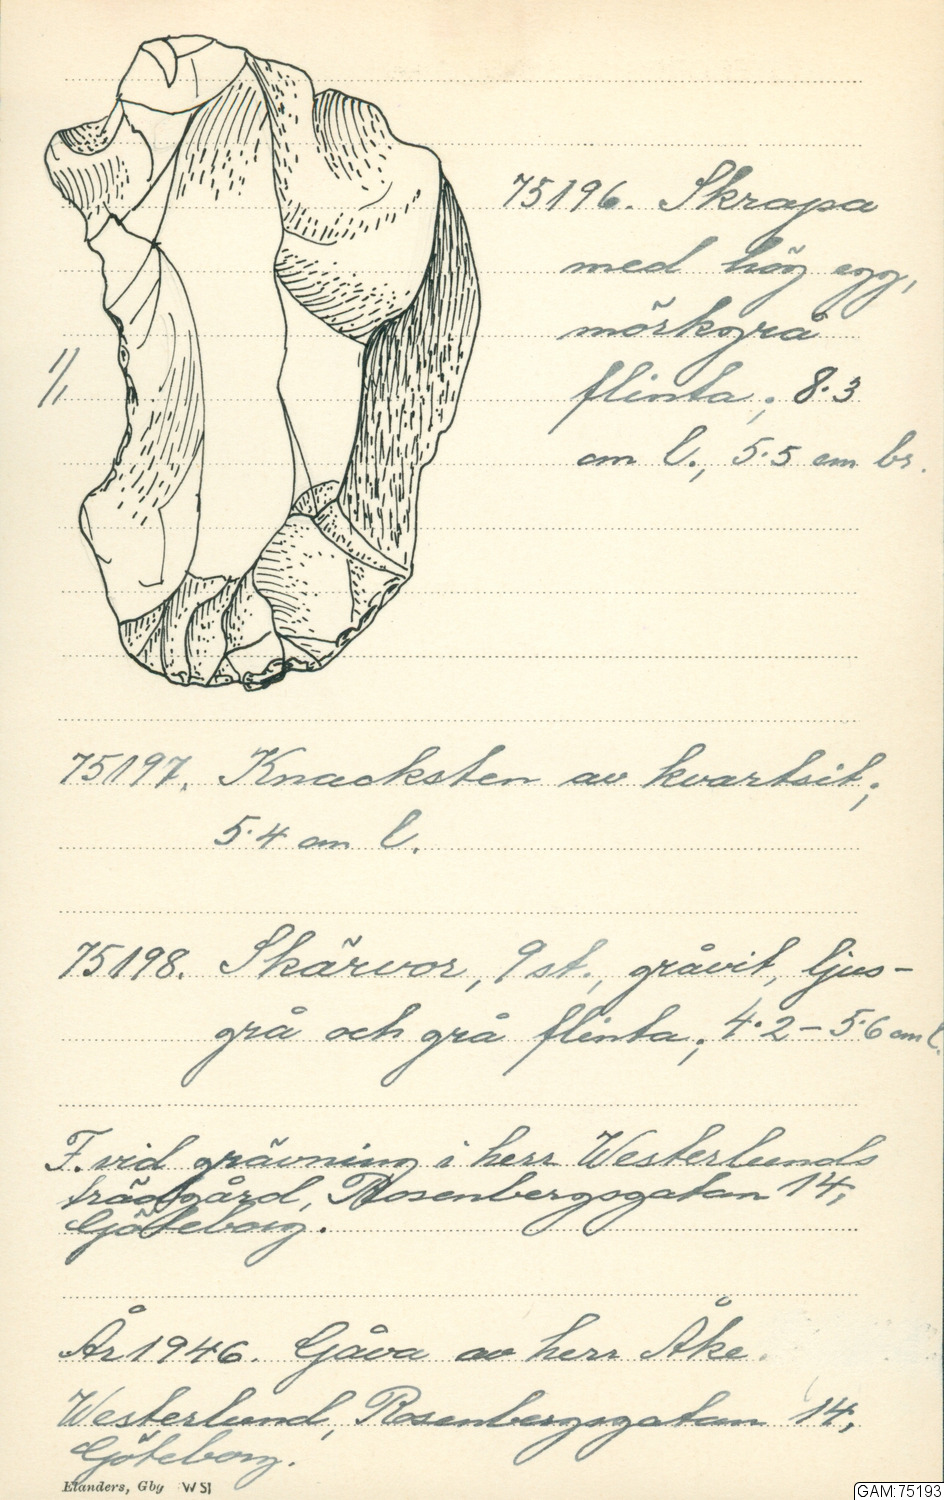 75196. Skrapa
med hög egg,
mörkgrå
1/1
flinta; 8·3
cm l., 5·5 cm br.
75197. Knacksten av kvartsit;
5·4 cm l.
75198. Skärvor, 9 st., gråvit, ljus-
grå och grå flinta; 4·2-5·6 cm l.
F. vid grävning i herr Westerlunds
trädgård, Rosenbergsgatan 14,
Göteborg.
År 1946. Gåva av herr Åke
Westerlund, Rosenbergsgatan 14,
Göteborg.
Elanders, Gbg W 51
GAM:75193